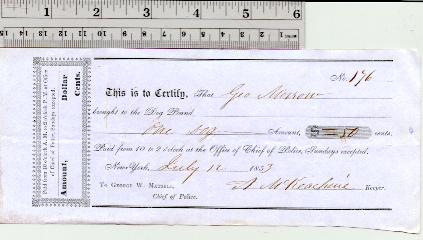 1 2 3 4 5 6
No. 176
This is to Certify, That Geo Morrow
brought to the Dog Pound
One dog Amount, $ = 50 cents.
Paid from 10 to 2 o'clock at the Office of Chief of Police, Sundays excepted.
New-York, July 12 1853
To George W. Matsell, Keeper.
Chief of Police.
Amount, Dollar
Cents.